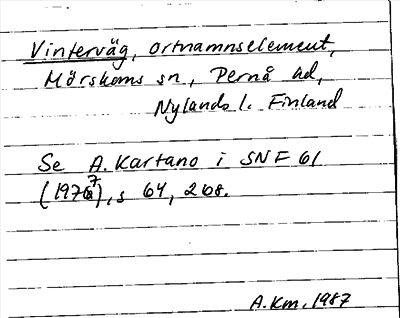 Vinterväg, ortnamnselement,
Mörskoms sn, Pernå hd,
Nylands l. Finland
Se A. Kartano i SNF 61
(1977), s 64, 268.
A.Km. 1987